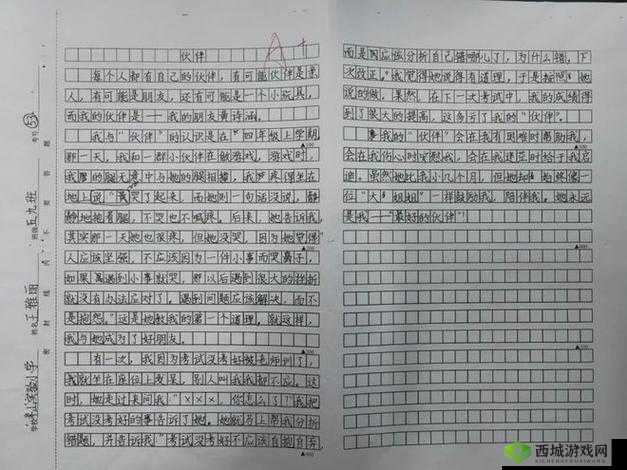 伙伴
A+
每个人都有自己的伙伴，有可能伙伴是家
人，有可能是朋友，还有可能是一个小玩具，
而我的伙伴是——我的朋友黄诗涵。
我与“伙伴”的认识是在“四年级上学期
那一天，我和一群小伙伴在做游戏，游戏时，
我的腿无意中与她的腿相撞，我疼得坐在
地上哭了起来，而她则一句话没说，静
静地抱着腿，不哭也不喊疼。后来，她告诉我，
其实那一天她也很疼，但她没哭，因为她觉得
人应该坚强，不应该因为一件小事而哭鼻子，
如果遇到小事就哭，那以后遇到很大的挫折
就没有办法应对了。遇到问题应该解决，而不
是抱怨。”这是她教我的第一个道理。就这样，
我与她成为了好朋友。
有一次，我因为考试没考好被老师训了，
我就坐在座位上发呆，别人叫我我都不应。这
时，她走过来问我“×××，你怎么了？”我把
考试没考好的事告诉了她。她就马上帮我分析
错题，并告诉我“考试没考好不应该自暴自弃，
而是因应该分析自己错哪儿了，为什么错，下
次改正。”我觉得她说得有道理，于是按照她
说的做，果然，在下一次考试中，我的成绩得
到了很大的提高，这多亏了我的“伙伴”。
我的“伙伴”会在我有困难时帮助我，
会在我伤心时安慰我，会在我迷茫时给予我启
迪。虽然她比我小几个月，但她却始终像一
位“大姐姐”一样鼓励我，陪伴我。她永远
是我——“最好的伙伴”！
考号 52
班级 五九班
姓名 王雅丽
学校 实验小学
密 封 线 内 不 要 答 题
西城游戏网